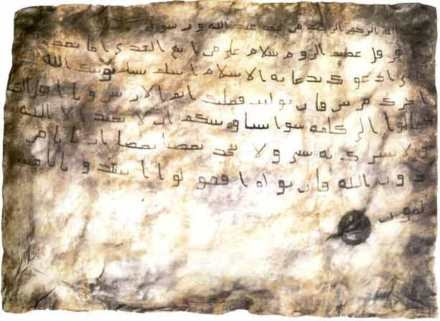 الله الرحمن الرحيم من محمد عبد الله ورسوله
هرقل عظيم الروم سلام على من اتبع الهدى اما بعد
ادعوك بدعاية الاسلام اسلم تسلم يوتك الله
اجرك مرتين فان توليت فعليك اثم الاريسين ويا اهل
تعالوا الى كلمة سوا بيننا وبينكم ان لا نعبد الا الله
ولا نشرك به شيا ولا يتخذ بعضنا بعضا اربابا من
دون الله فان تولوا فقولوا اشهدوا بانا